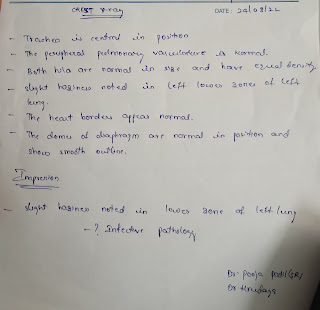 CHEST X-ray
DATE: 20/03/22
- Trachea is central in position
- The peripheral pulmonary vasculature is normal.
- Both hila are normal in size and have equal density.
- slight haziness noted in left lower zones of left
lung.
- The heart borders appear normal.
- The domes of diaphragm are normal in position and
show smooth outline.
Impression
- slight haziness noted in lower zone of left lung
- ? Infective pathology
Dr. Pooja (SR)
Dr